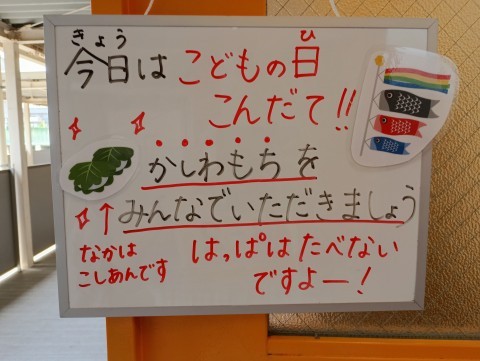 きょう
今日は こどもの日
ひ
こんだて!!
かしわもちを
↑みんなでいただきましょう
なかは
こしあんです
はっぱは たべない
ですよー!